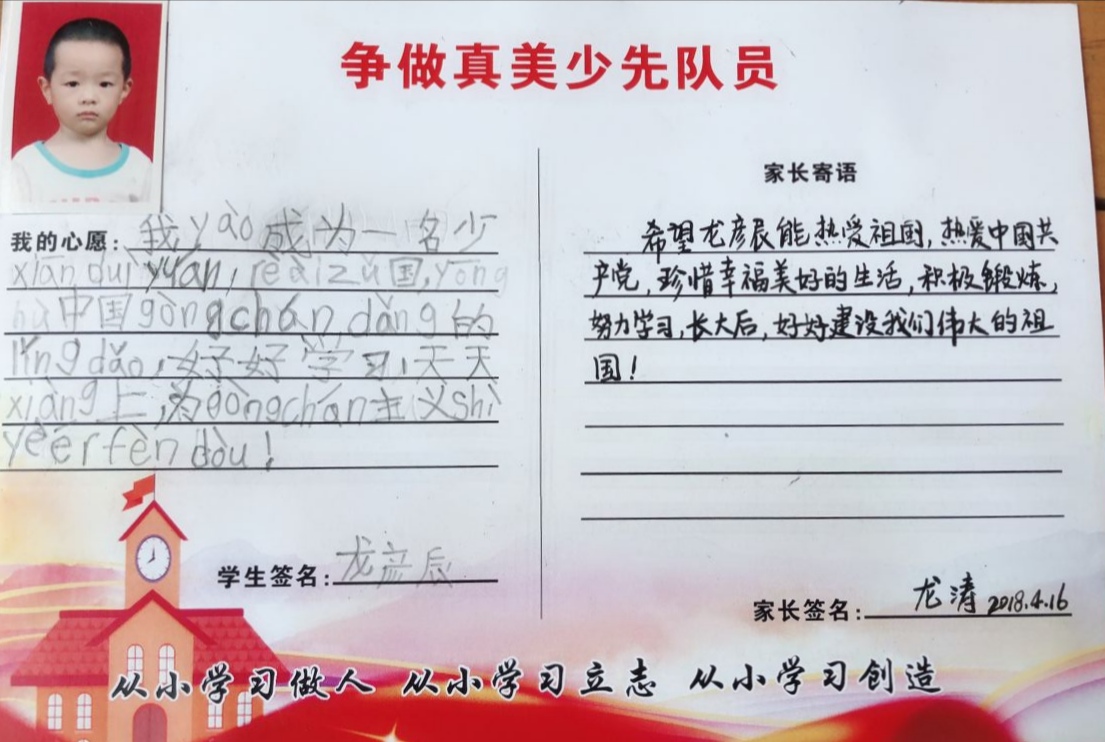 争做真美少先队员
我的心愿：我yào成为一名少
xiān duì yuán，rè ài zǔ国，yōng
hù中国gòngchǎn dǎng的
lǐng dǎo，好好学习，天天
xiàng上，为gòngchǎn主义shì
yè ér fèn dòu！
学生签名：龙彦辰
家长寄语
希望龙彦辰能热爱祖国，热爱中国共
产党，珍惜幸福美好的生活，积极锻炼，
努力学习，长大后，好好建设我们伟大的祖
国！
家长签名：龙涛 2018.4.16
从小学习做人 从小学习立志 从小学习创造